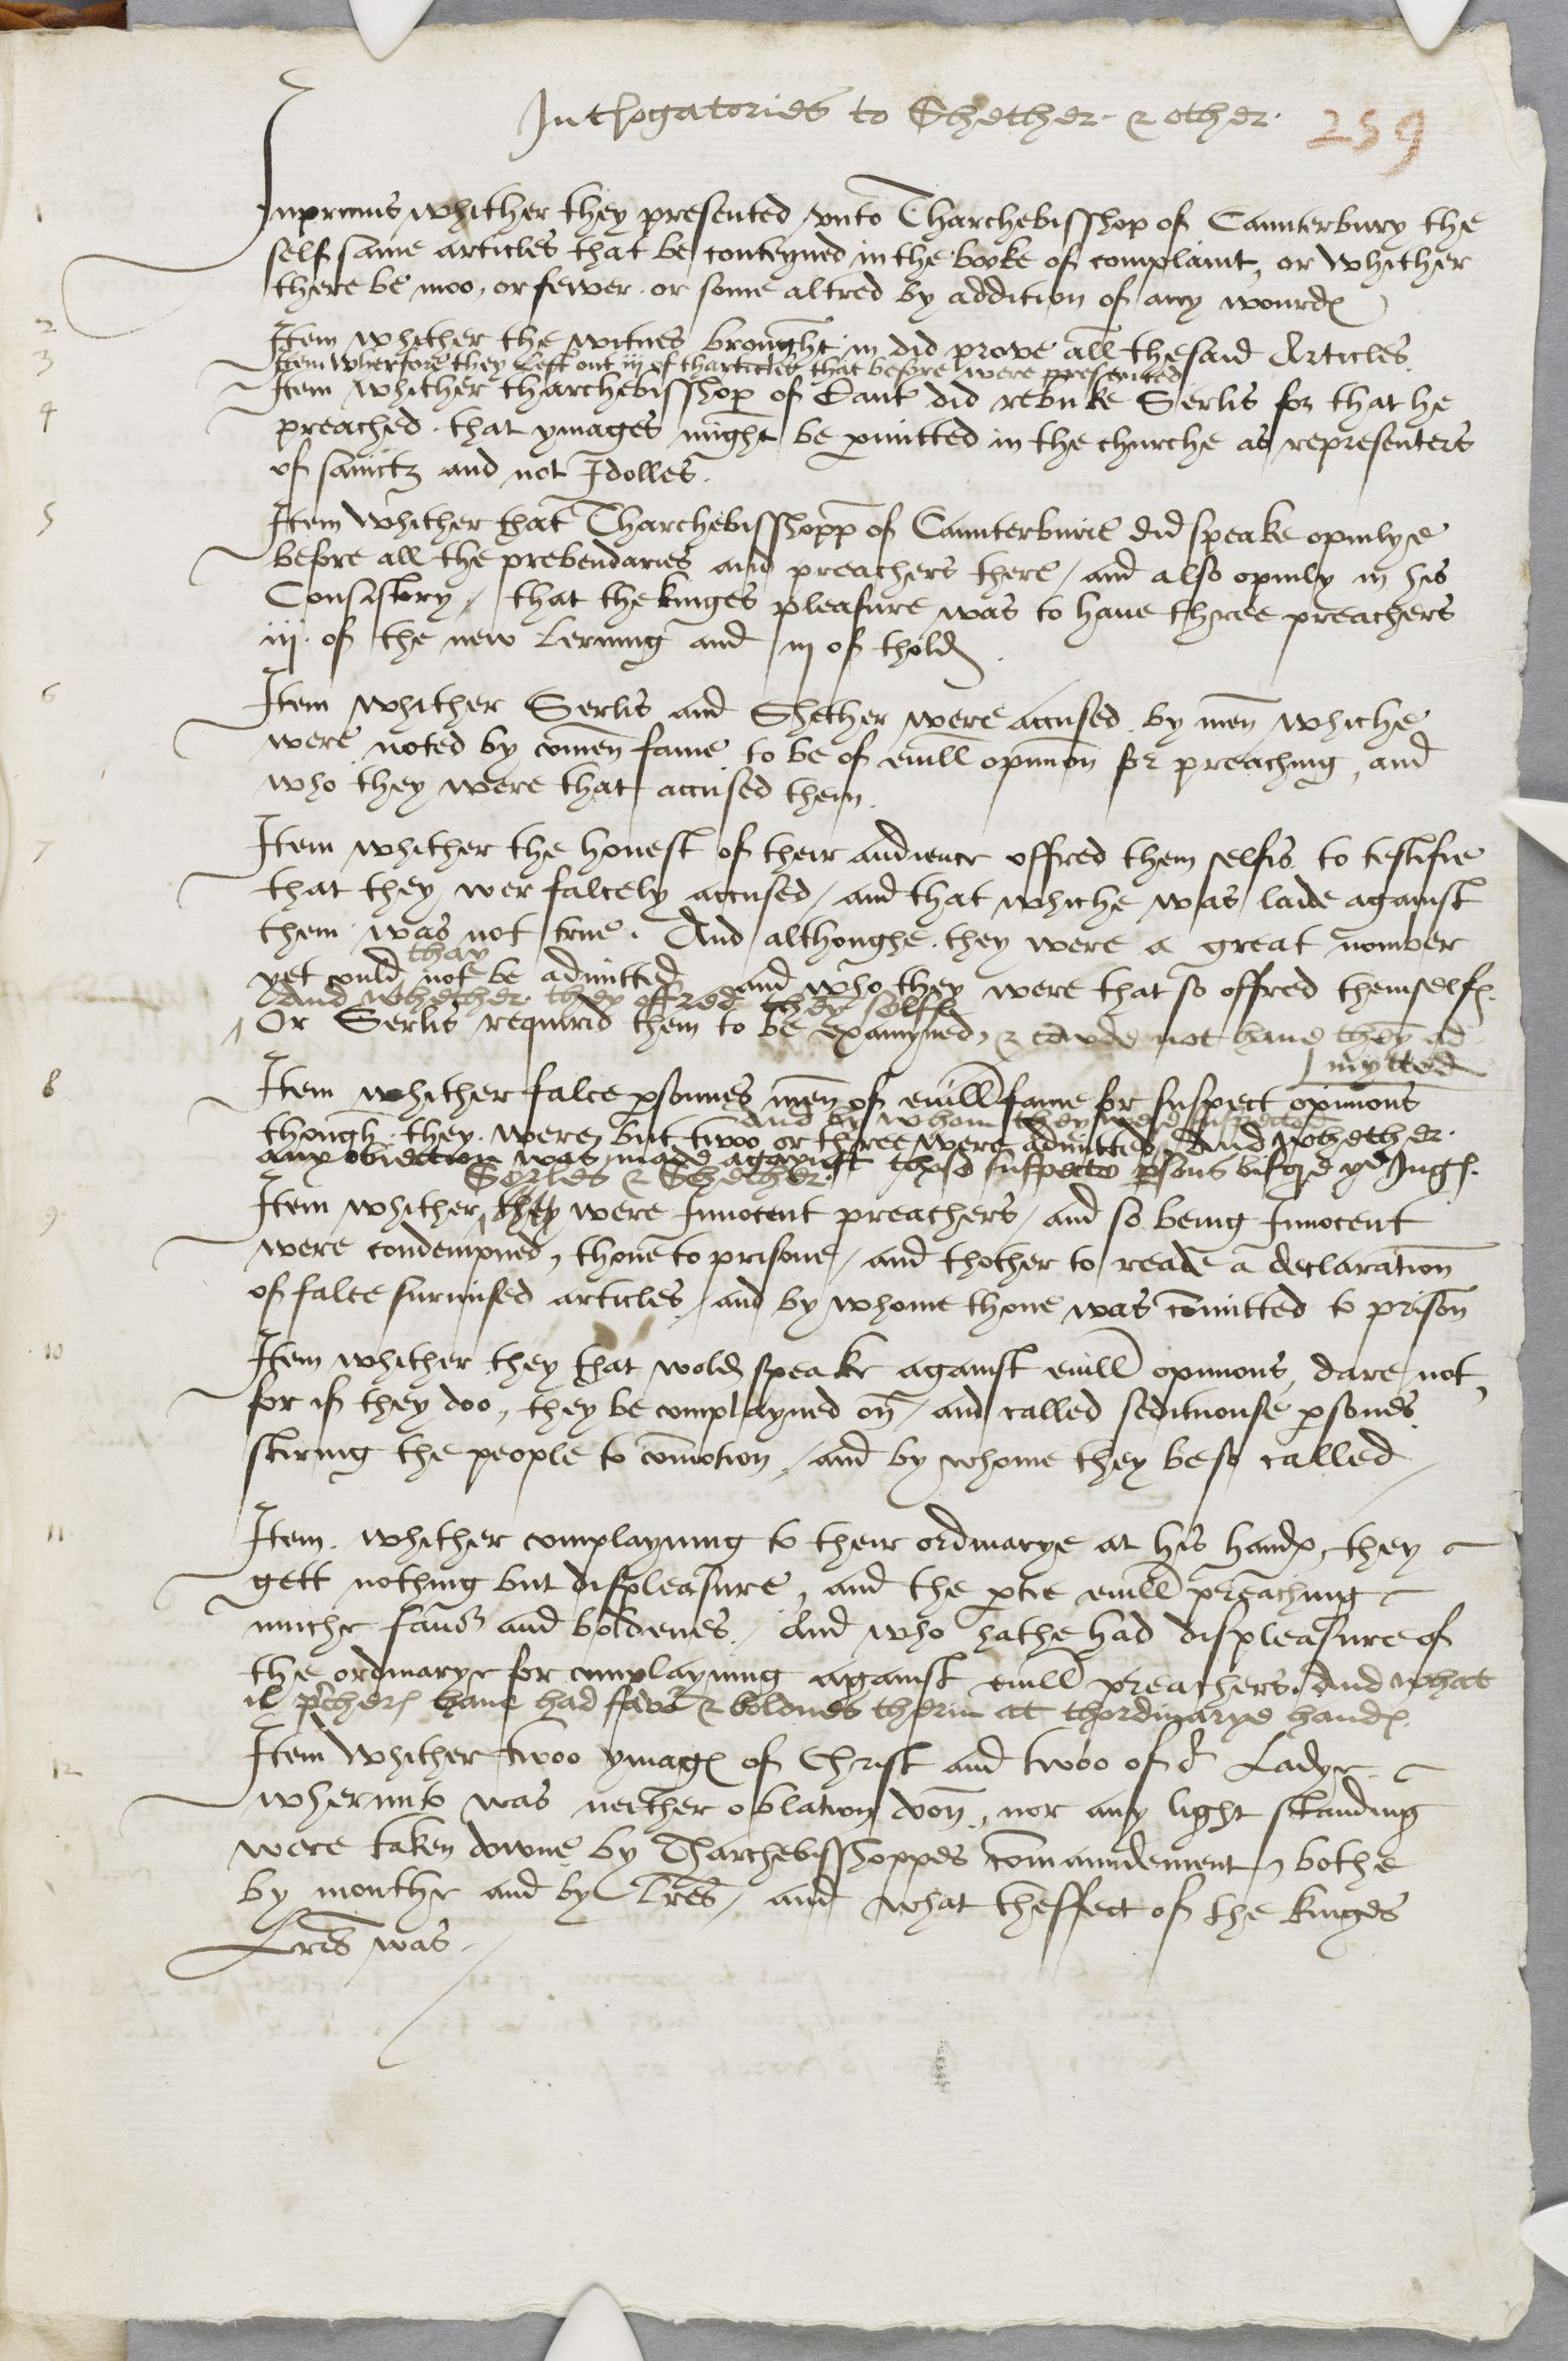 Int'rogatories to Shether & other.
259
1 Inprimis whither they presented vnto Tharchebisshop of Caunterbury the
self same articles that be conteyned in the booke of complaint, or whither
there be moo, or fewer, or some altred by addition of any wourdes
2 Item whither the witnes brought in did prove all the said Articles.
3 Item wherfore they left out iij of tharticles that before were presented
4 Item whither tharchebisshop of Cant did rebuke Serlis for that he
preached that ymages might be pmitted in the churche as representers
of sainctz and not Idolles.
5 Item whither that Tharchebisshopp of Caunterburie did speake opinlye
before all the prebendaries and preachers there / and also opinly in his
Consistory / that the kinges pleasure was to haue three preachers
iij of the new lerning and iij of thold.
6 Item whither Serlis and Shether were accused by men whiche
were noted by comen fame to be of euill opinion for preaching, and
who they were that accused them.
7 Item whither the honest of their audience offred them selfis to testifie
that they wer falcely accused / and that whiche was laide against
them was not true. And althoughe they were a great nomber
thay
yet could not be admitted and who they were that so offred themselfes.
And whether they offred them selffe
Or Serlis requirid them to be examyned, & cowde not haue them ad
mytted
8 Item whither falce psonnes men of euill fame or suspect opinions
And by whom they were suspected
though they were but twoo or three were admitted, And whether
any obiection was made agaynst thoso suspecte psons bifore ye Juges.
Serles & Shether.
9 Item whither they were Innocent preachers / and so being Innocent
were condempned, thone to prisone / and thother to reade a declaration
of falce surmised articles / and by whome thone was comitted to prison
10 Item whither they that wold speake against euill opinions, dare not,
for if they doo, they be complayned on / and called seditiouse psones
stiring the people to comotion, / and by whome they be so called
11 Item whither complayning to their ordinarye at his handes, they
gett nothing but displeasure, and the ptie euill preaching
muche fauor and boldenes. / And who hathe had displeasure of
the ordinarye for complayning against euill preachers. And what
il pchers haue had favor & boldnes therin at thordinarye handes.
12 Item whither twoo ymages of Christ and twoo of or Ladye
wherunto was neither oblation don, nor any light standing
were taken downe by Tharchebisshoppes comaundement, bothe
by mouthe and by lres / and what theffect of the kinges
Lres was.